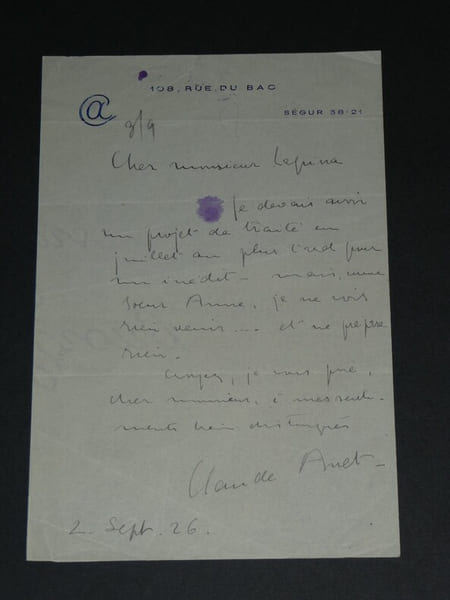 108, RUE DU BAC
@
SÉGUR 38-21
3/9
Cher monsieur
Je devais avoir
un projet de traité en
juillet au plus tard pour
un inédit - mais, comme
soeur Anne, je ne vois
rien venir.... et ne
rien.
Croyez, je vous prie,
cher monsieur, à mes senti-
ments bien distingués
Claude Anet
2. Sept. 26.